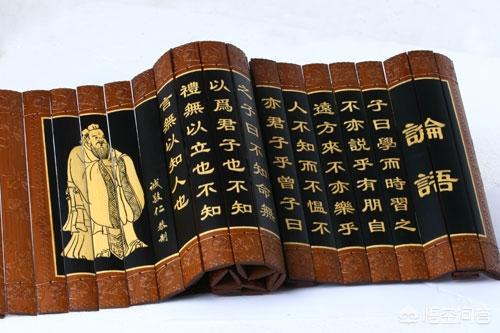 論語
子曰學而時習之
不亦說乎有朋自
遠方來不亦樂乎
人不知而不慍不
亦君子乎曾子曰
之子曰不知命無
以爲君子也不知
禮無以立也不知
言無以知人也
誠敬仁
悟空问答